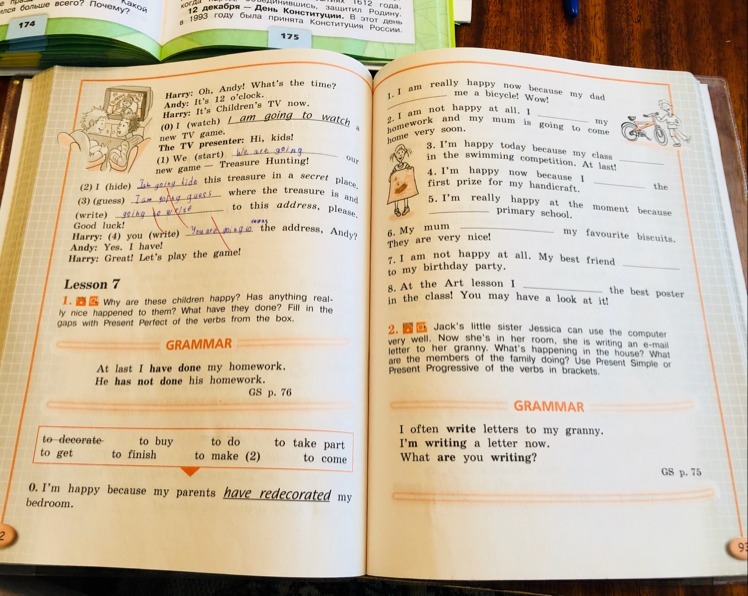 какой
лся больше всего? Почему?
174
1612 года,
объединившись, защитил Родину.
12 декабря — День Конституции. В этот день
в 1993 году была принята Конституция России.
175
Harry: Oh, Andy! What's the time?
Andy: It's 12 o'clock.
Harry: It's Children's TV now.
(0) I (watch) I am going to watch a
new TV game.
The TV presenter: Hi, kids!
(1) We (start) We are going our
new game — Treasure Hunting!
(2) I (hide) going hide this treasure in a secret place.
(3) (guess) I am going guess where the treasure is and
(write) going to write to this address, please.
Good luck!
Harry: (4) you (write) You are going to the address, Andy?
Andy: Yes. I have!
Harry: Great! Let's play the game!
Lesson 7
1. Why are these children happy? Has anything real-
ly nice happened to them? What have they done? Fill in the
gaps with Present Perfect of the verbs from the box.
GRAMMAR
At last I have done my homework.
He has not done his homework.
GS p. 76
to decorate to buy to do to take part
to get to finish to make (2) to come
0. I'm happy because my parents have redecorated my
bedroom.
2
1. I am really happy now because my dad
me a bicycle! Wow!
2. I am not happy at all. I my
homework and my mum is going to come
home very soon.
3. I'm happy today because my class
in the swimming competition. At last!
4. I'm happy now because I the
first prize for my handicraft.
5. I'm really happy at the moment because
primary school.
6. My mum my favourite biscuits.
They are very nice!
7. I am not happy at all. My best friend
to my birthday party.
8. At the Art lesson I the best poster
in the class! You may have a look at it!
2. Jack's little sister Jessica can use the computer
very well. Now she's in her room, she is writing an e-mail
letter to her granny. What's happening in the house? What
are the members of the family doing? Use Present Simple or
Present Progressive of the verbs in brackets.
GRAMMAR
I often write letters to my granny.
I'm writing a letter now.
What are you writing?
GS p. 75
93